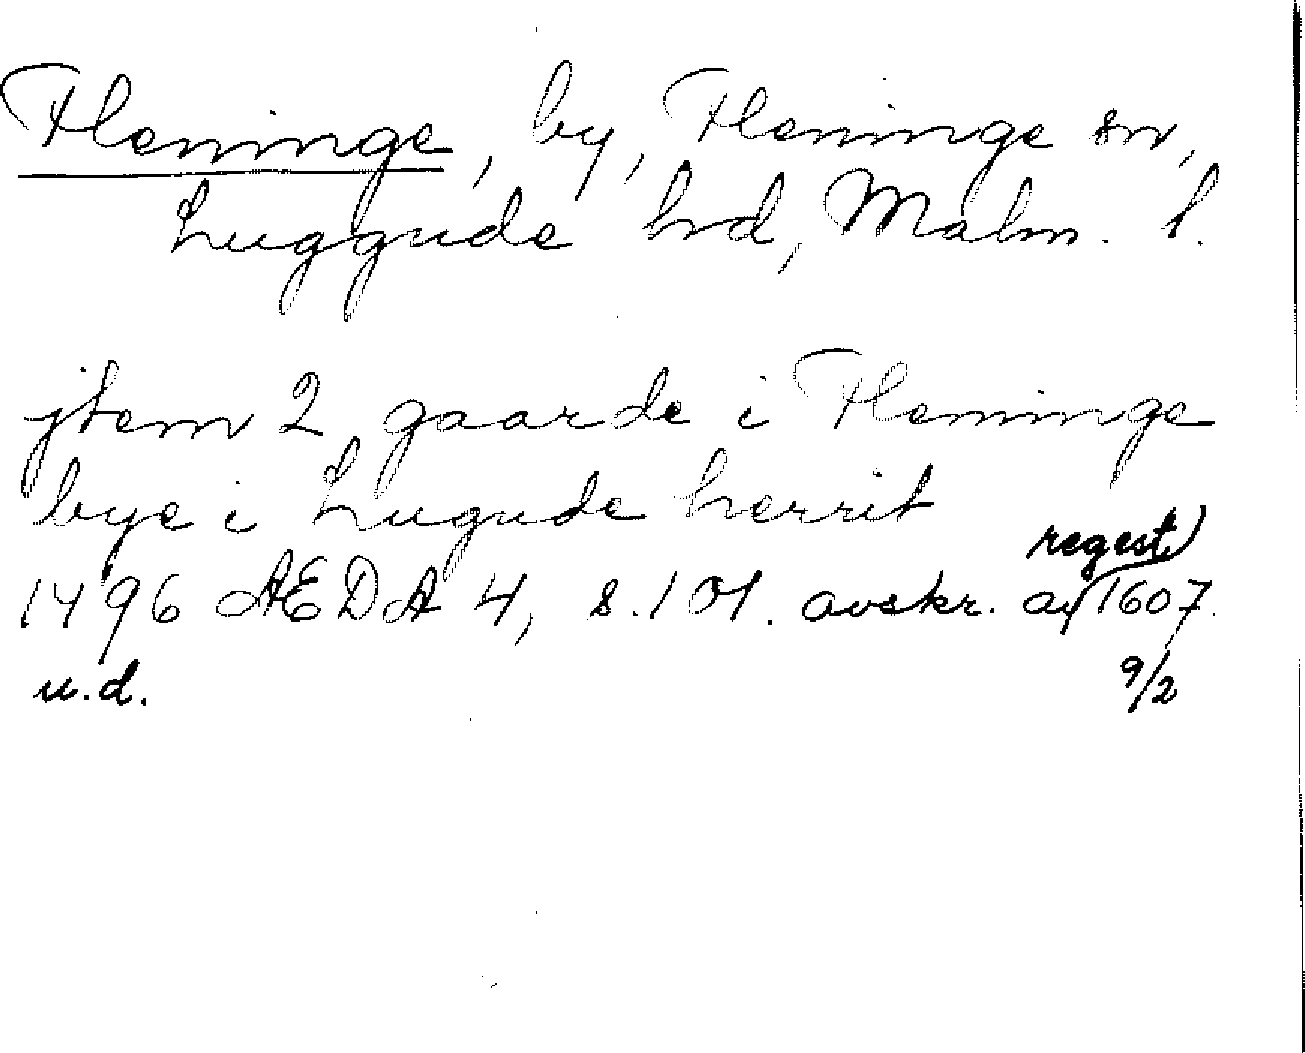 Fleninge, by, Fleninge sn,
Luggude hrd, Malm. l.
jtem 2 gaarde i Fleninge
bye i Lugude herrit
regest
1496 AEDA 4, s. 101. avskr. av 1607.
u.d. 9/2